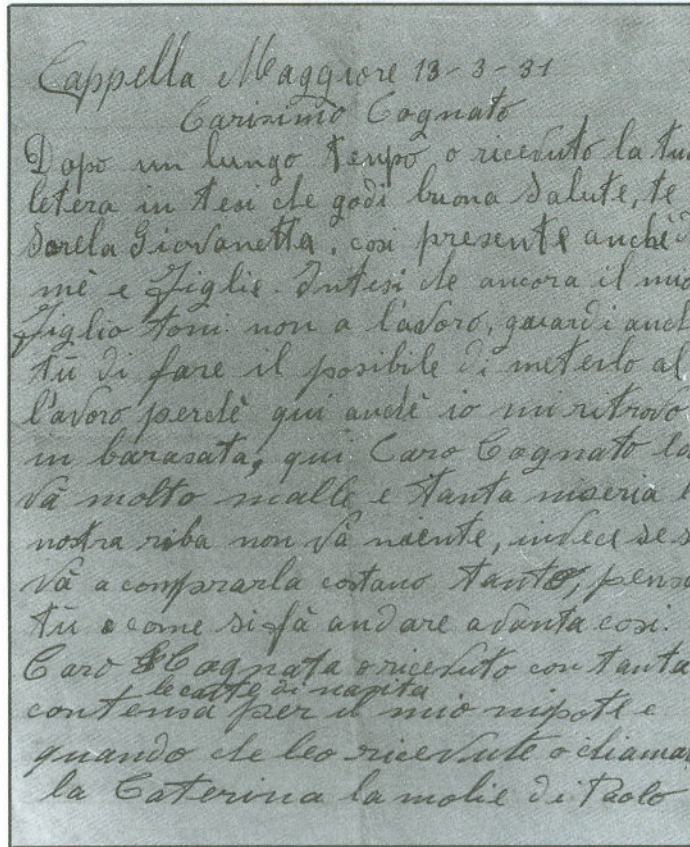 Cappella Maggiore 13-3-31
Carisimo Cognato
Dopo un lungo tenpo o riceduto la tua
letera in tesi che godi buona Salute, te
Sorela Giovanetta, cosi presente anche
mè e Figlie. Intesi che ancora il mio
Figlio toni non a lavoro, guardi anch
tù di fare il posibile di meterlo al
l'avoro perchè qui anchè io mi ritrovo
in barasata, qui Caro Cognato la
và molto malle e tanta miseria e
nostra roba non và niente, invece se s
và a comprarla costano tanto, pensa
tù come si fà andare avanta cosi.
Caro Cognata o riceduto con tanta
le carte di nasita
contensa per il mio nipote e
quando che leo ricevute o chiama
la Caterina la molie di Paolo